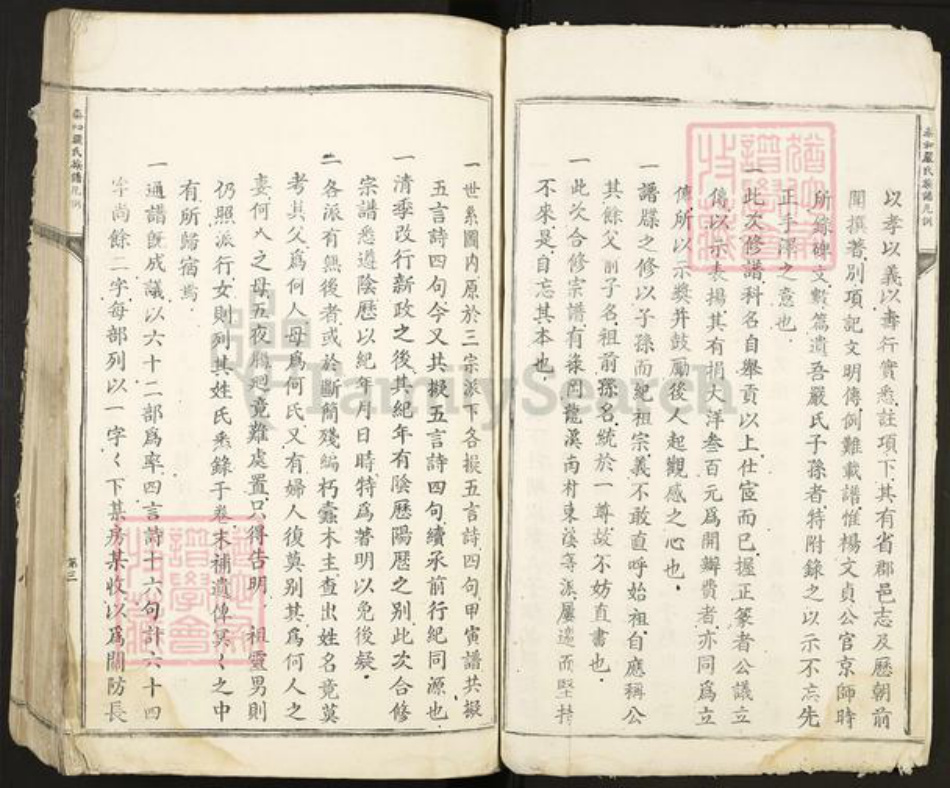 泰和嚴氏族譜凡例
以孝以義以壽行實悉註項下其有省郡邑志及歷朝前
聞撰著別項記文明傳例難載譜惟楊文貞公官京師時
所錄碑文數篇遺吾嚴氏子孫者特附錄之以示不忘先
正手澤之意也
一此次修譜科名自舉貢以上仕宦而已握正篆者公議立
傳以示表揚其有捐大洋叁百元爲開辦費者亦同爲立
傳所以示獎并鼓勵後人起觀感之心也
一譜牒之修以子孫而紀祖宗義不敢直呼始祖自應稱公
其餘父前子名祖前孫名統於一尊故不妨直書也
一此次合修宗譜有祿岡龍溪南村東溪等派屢邀而堅持
不來是自忘其本也
一世系圖內原於三宗派下各擬五言詩四句甲寅譜共擬
五言詩四句今又共擬五言詩四句續承前行紀同源也
一清季改行新政之後其紀年有陰歷陽歷之别此次合修
宗譜悉遵陰歷以紀年月日時特爲著明以免後疑
一各派有無後者或於斷簡殘編朽蠹木主查出姓名竟莫
考其父爲何人母爲何氏又有婦人復莫别其爲何人之
妻何人之母五夜腸迴竟難處置只得告明 祖靈男則
仍照派行女則列其姓氏悉錄于卷末補遺俾冥く之中
有所歸宿焉
一通譜旣成議以六十二部爲率四言詩十六句計六十四
字尚餘二字每部列以一字く下某房某收以爲關防長
泰和嚴氏族譜凡例
第三